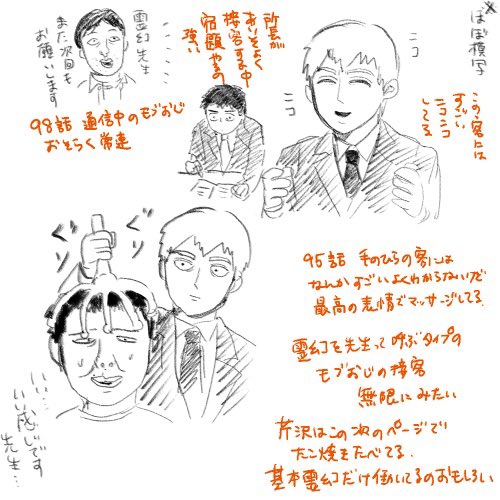 ※ほぼ模写
ニコ
ニコ
この客には
すっごい
ニコニコ
してる
所長が
あいそよく
接客する中
宿題やるの
強い
霊幻先生
また次回も
お願いします
98話 通信中のモブおじ
おそらく常連
ぐり
ぐり
い…
いい感じです
先生…
95話 手のひらの客には
なんかすごいよくわからないけど
最高の表情でマッサージしてる
霊幻を先生って呼ぶタイプの
モブおじの接客
無限にみたい
芹沢はこの次のページで
たこ焼をたべてる
基本霊幻だけ働いてるのおもしろい